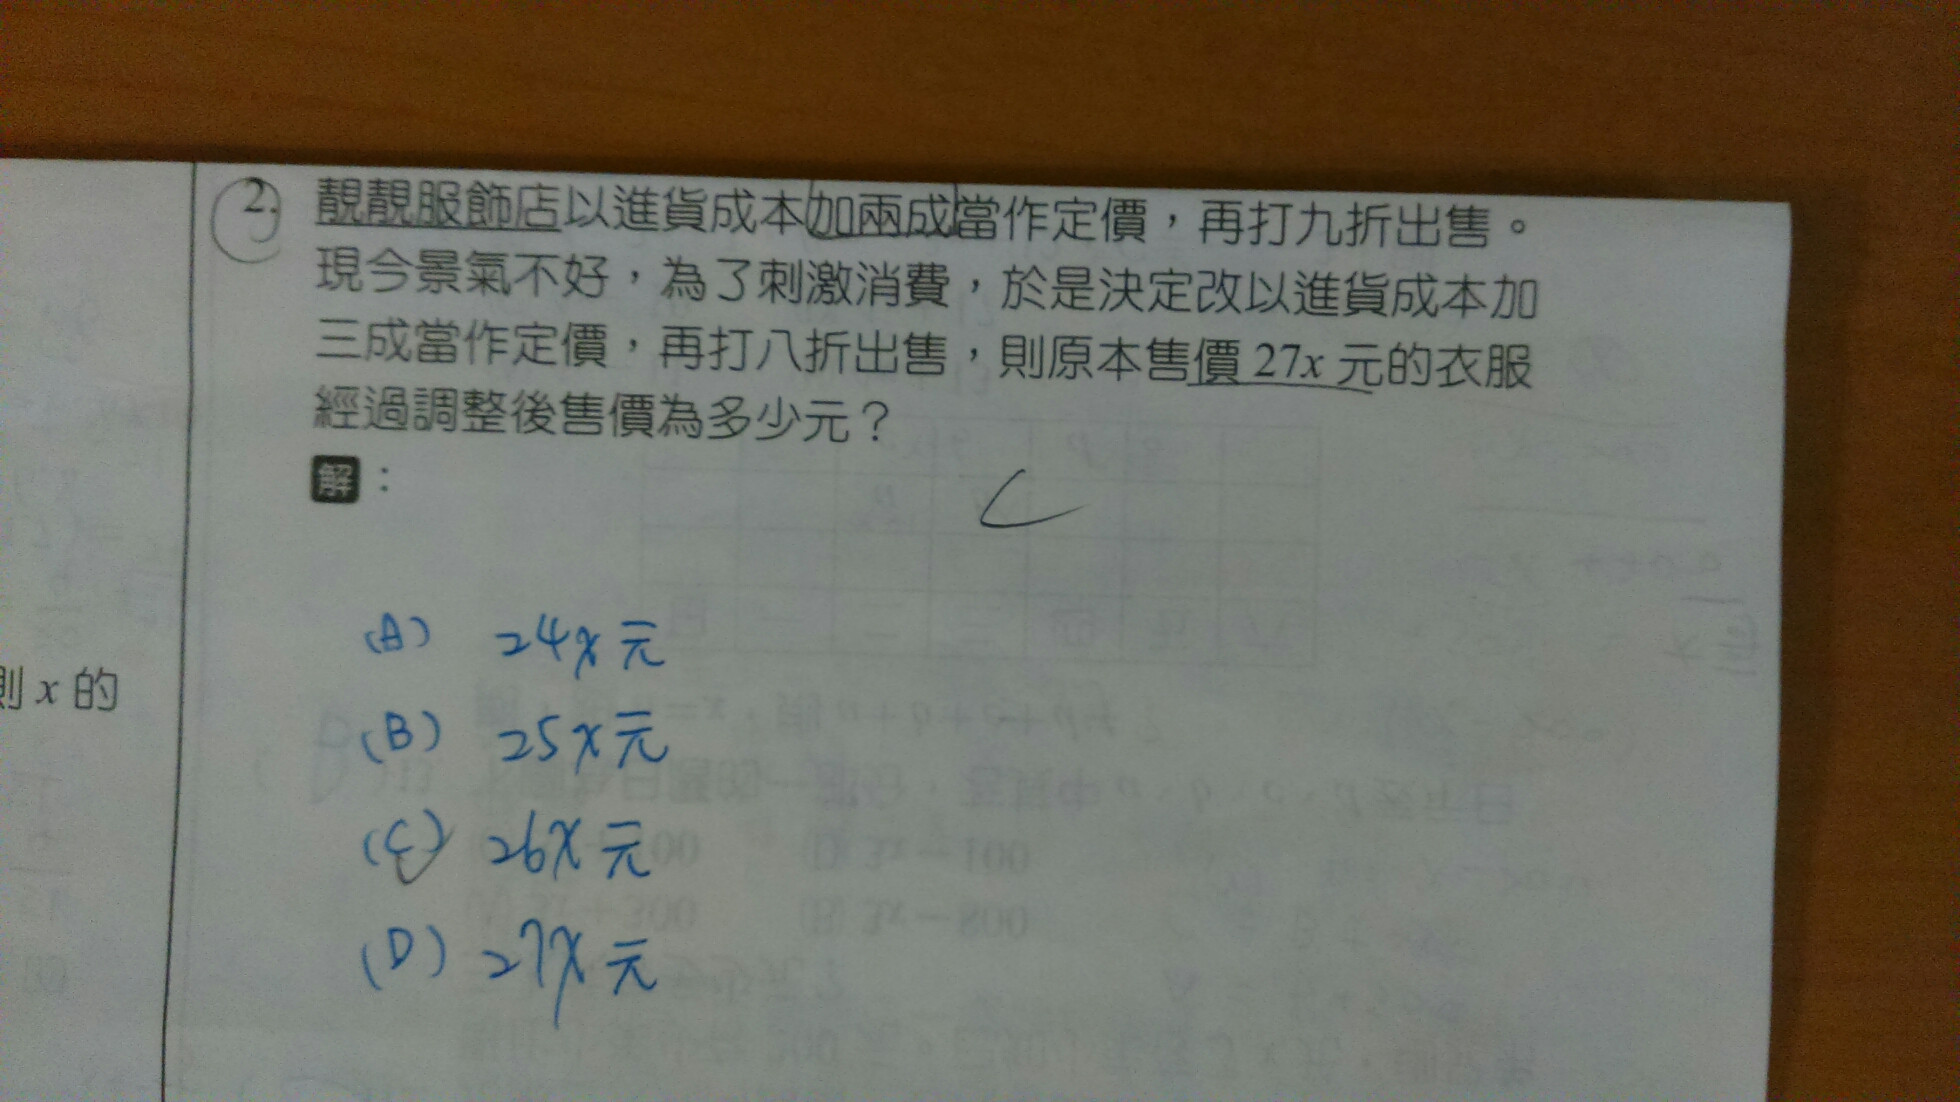 2. 靚靚服飾店以進貨成本加兩成當作定價，再打九折出售。
現今景氣不好，為了刺激消費，於是決定改以進貨成本加
三成當作定價，再打八折出售，則原本售價 27x 元的衣服
經過調整後售價為多少元？
解：
C
(A) 24x元
(B) 25x元
則 x 的
(C) 26x元
(D) 27x元